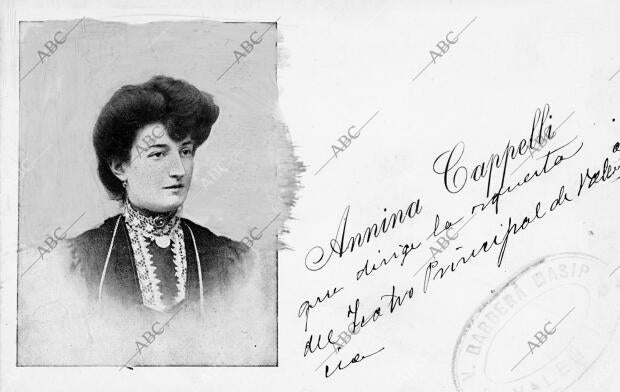 Annina Cappelli
que dirige la orquesta
del Teatro Principal de Valen
cia
V. BARBERÁ MASIP
VALENCIA
ABC
ABC
ABC
ABC
ABC
ABC
ABC
ABC
ABC
ABC